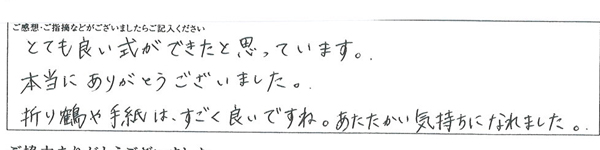 ご感想・ご指摘などがございましたらご記入ください
とても良い式ができたと思っています。
本当にありがとうございました。
折り鶴や手紙は、すごく良いですね。あたたかい気持ちになれました。